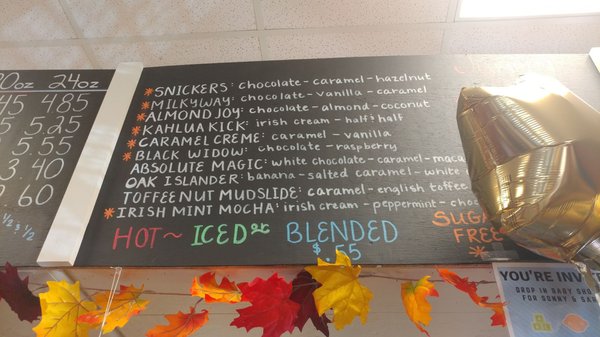 20oz 24oz
45 4.85
5 5.25
5 5.55
3.40
2.60
1/2 & 1/2
*SNICKERS: chocolate - caramel - hazelnut
*MILKYWAY: chocolate - vanilla - caramel
*ALMOND JOY: chocolate - almond - coconut
*KAHLUA KICK: irish cream - half & half
*CARAMEL CREME: caramel - vanilla
*BLACK WIDOW: chocolate - raspberry
ABSOLUTE MAGIC: white chocolate - caramel - maca
OAK ISLANDER: banana - salted caramel - white
TOFFEENUT MUDSLIDE: caramel - english toffee
*IRISH MINT MOCHA: irish cream - peppermint - choc
HOT ~ ICED BLENDED
$.55
SUGAR
FREE *
YOU'RE INVITE
DROP IN BABY SHO
FOR SONNY & SA